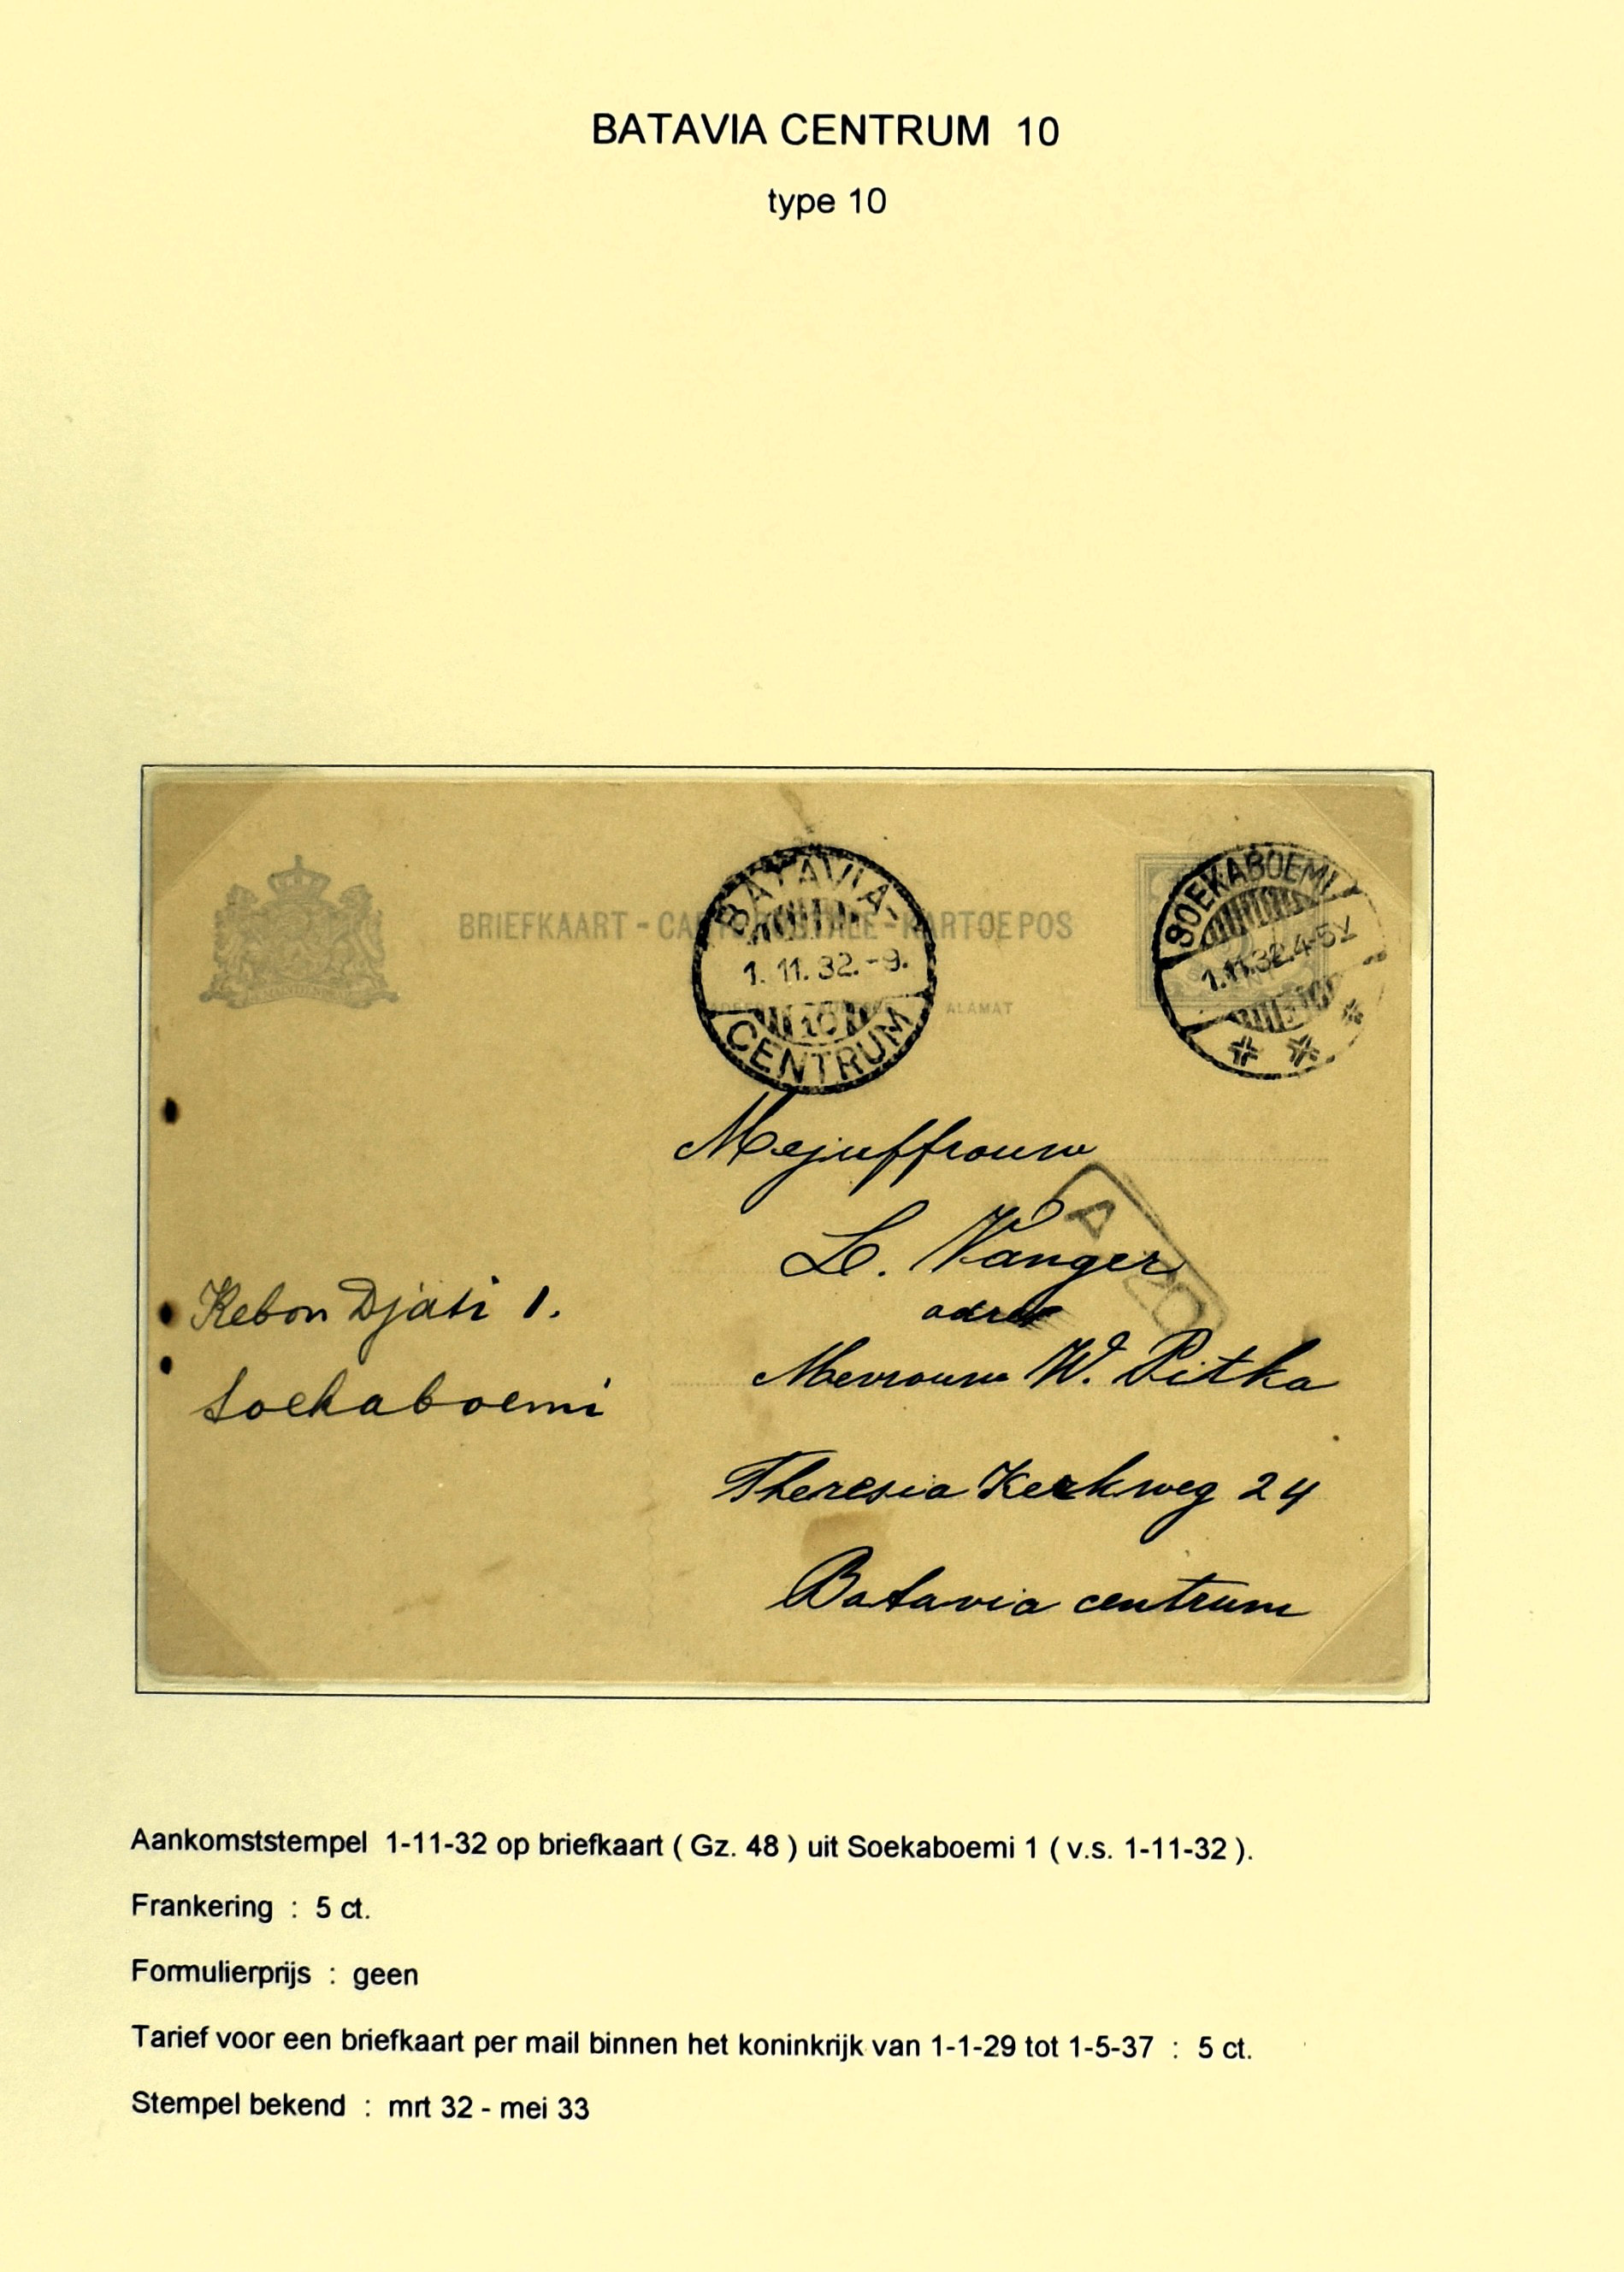 BATAVIA CENTRUM 10
type 10
BRIEFKAART - CARTE POSTALE - KARTOEPOS
ALAMAT
BATAVIA-
1.11.32.-9.
10
CENTRUM
SOEKABOEMI
1.11.32.4-5V
Mejuffrouw
L. Wanger
adres
Mevrouw W. Pitka
Theresia Kerkweg 24
Batavia centrum
Kebon Djati 1.
Soekaboemi
Aankomststempel 1-11-32 op briefkaart ( Gz. 48 ) uit Soekaboemi 1 ( v.s. 1-11-32 ).
Frankering : 5 ct.
Formulierprijs : geen
Tarief voor een briefkaart per mail binnen het koninkrijk van 1-1-29 tot 1-5-37 : 5 ct.
Stempel bekend : mrt 32 - mei 33